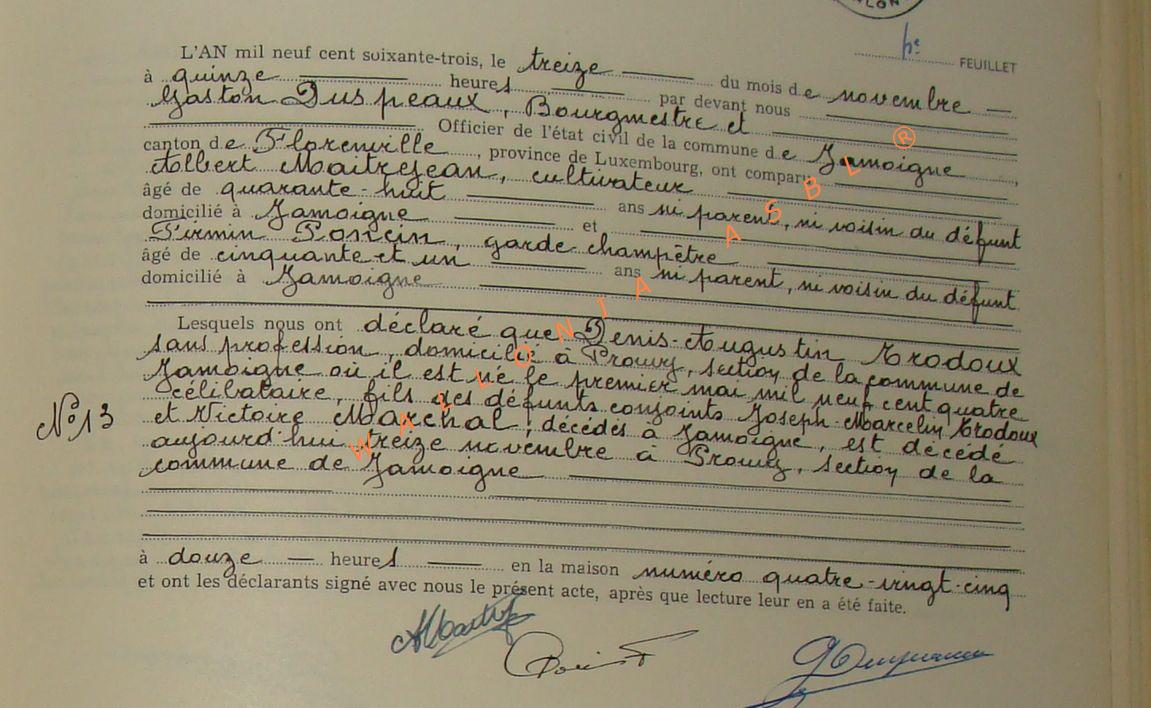 LON
pe FEUILLET
L'AN mil neuf cent soixante-trois, le treize du mois de novembre
à quinze heures par devant nous
Gaston Duspeaux, Bourgmestre et
Officier de l'état civil de la commune de Jamoigne
canton de Florenville, province de Luxembourg, ont comparu
Albert Maitrejean, cultivateur
âgé de quarante-huit ans ni parent, ni voisin du défunt
domicilié à Jamoigne et
Firmin Poncin, garde champêtre
âgé de cinquante et un ans ni parent, ni voisin du défunt
domicilié à Jamoigne
Lesquels nous ont déclaré que Denis-Augustin Trodoux
sans profession, domicilié à Prouvy, section de la commune de
Jamoigne où il est né le premier mai mil neuf cent quatre
célibataire, fils des défunts conjoints Joseph-Marcelin Trodoux
N° 13
et Victoire Marchal, décédés à Jamoigne, est décédé
aujourd'hui treize novembre à Prouvy, section de la
commune de Jamoigne
à douze heures en la maison numéro quatre-vingt-cinq
et ont les déclarants signé avec nous le présent acte, après que lecture leur en a été faite.
WALLONIA ASBL ®